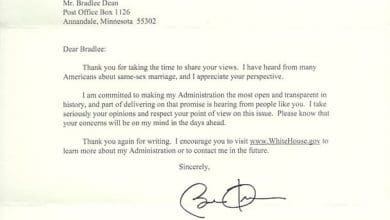 Mr. Bradlee Dean
Post Office Box 1126
Annandale, Minnesota 55302
Dear Bradlee:
Thank you for taking the time to share your views. I have heard from many
Americans about same-sex marriage, and I appreciate your perspective.
I am committed to making my Administration the most open and transparent in
history, and part of delivering on that promise is hearing from people like you. I take
seriously your opinions and respect your point of view on this issue. Please know that
your concerns will be on my mind in the days ahead.
Thank you again for writing. I encourage you to visit www.WhiteHouse.gov to
learn more about my Administration or to contact me in the future.
Sincerely,